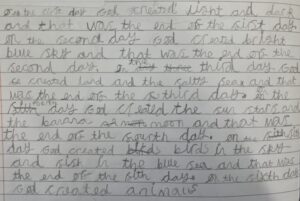 On the first day God created light and dark
and that was the end of the first day
on the second day God creard bright
blue sky and that was the end of the
second day. In the third day God
created land and the salty sea and that
was the end of the third day. on the
day God creard the sun stars and
the banana moon and that was
the end of the fourth day. on the
day God created birds in the sky
and fish in the blue sea and that was
the end of the fifth day. on the sixth day
God created animals